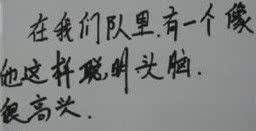 在我们队里.有一个像
他这样聪明头脑.
很高兴.